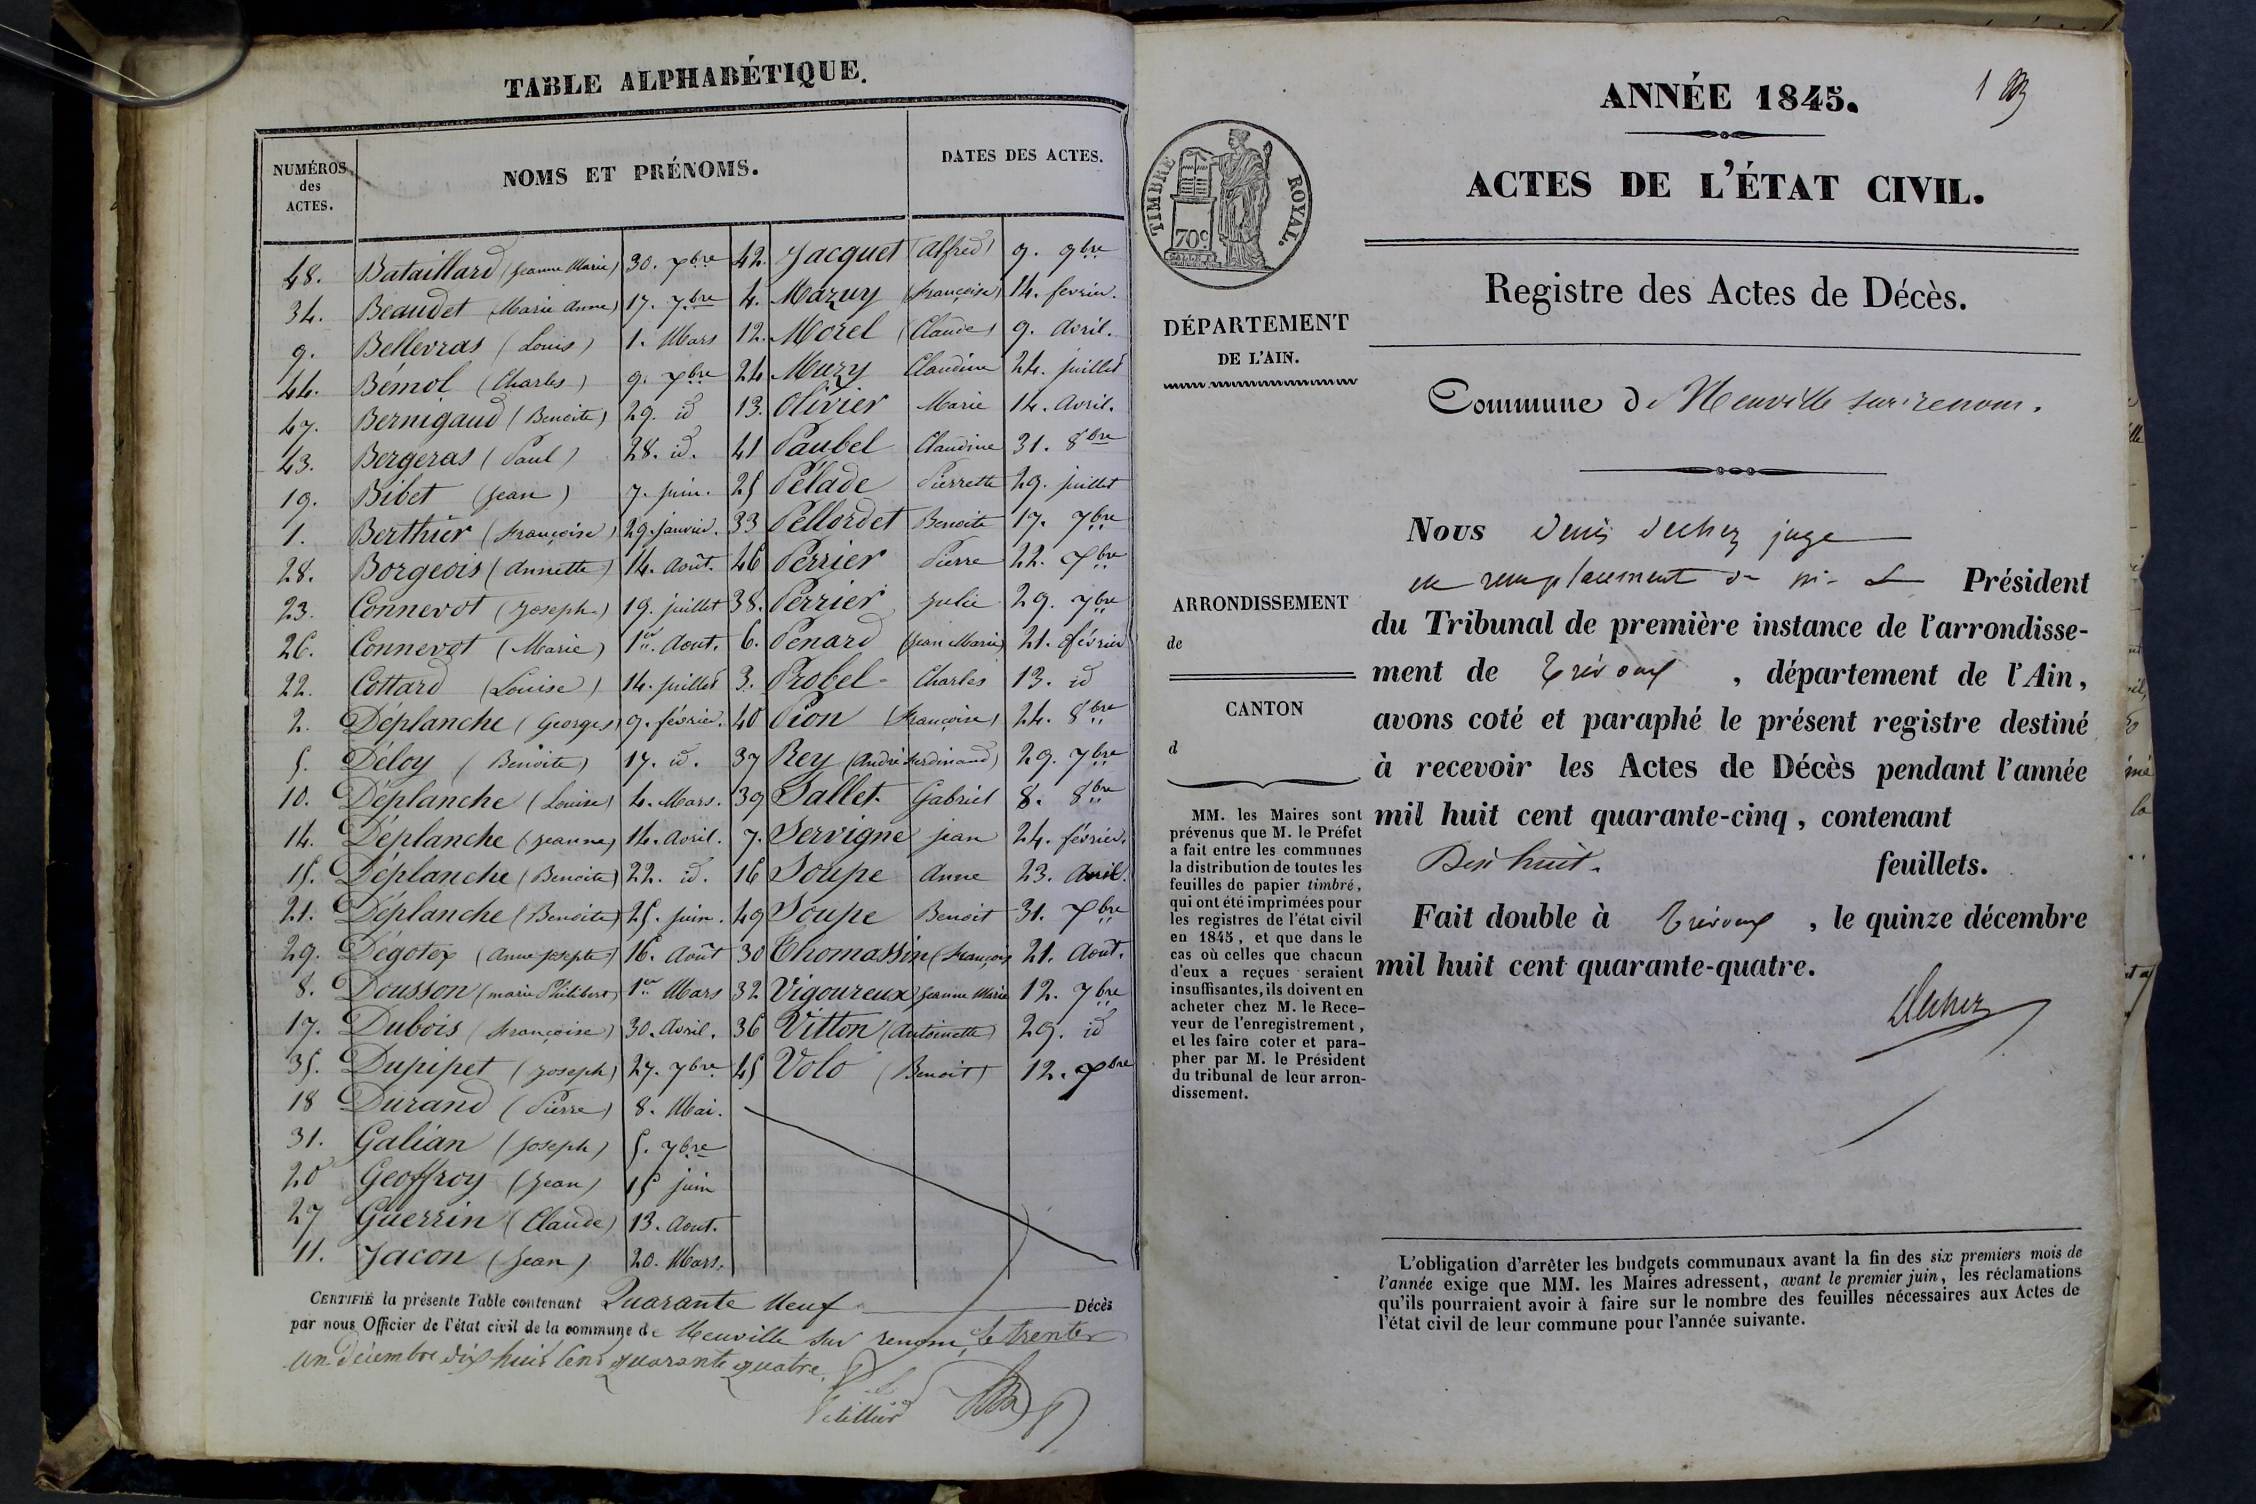 TABLE ALPHABÉTIQUE.
NUMÉROS
des
ACTES.
NOMS ET PRÉNOMS.
DATES DES ACTES.
48. Bataillard (Jeanne Marie) 30. xbre
34. Beaudet (Marie Anne) 17. 7bre
9. Bellevras (Louis) 1. Mars
44. Bémol (Charles) 9. xbre
47. Bernigaud (Benoite) 29. id
43. Bergeras (Paul) 28. id.
19. Bibet (Jean) 7. juin.
1. Berthier (Françoise) 29. janvier.
28. Borgeois (Annette) 14. Août.
23. Connevot (Joseph) 19. juillet
26. Connevot (Marie) 1er. Aout.
22. Cottard (Louise) 14. juillet
2. Déplanche (Georges) 9. février.
5. Déloy (Benoite) 17. id.
10. Déplanche (Louise) 4. Mars.
14. Déplanche (Jeanne) 14. Avril.
15. Déplanche (Benoite) 22. id.
21. Déplanche (Benoite) 25. juin.
29. Dégotex (Anne josepte) 16. Août
8. Dousson (marie Philibert) 1er Mars
17. Dubois (françoise) 30. Avril.
35. Dupipet (Joseph) 27. 7bre
18 Durand (Pierre) 8. Mai.
31. Galian (Joseph) 5. 7bre
20 Geoffroy (Jean) 15 juin
27 Guerrin (Claude) 13. Aout.
11. Jacon (Jean) 20. Mars.
42. Jacquet (Alfred) 9. 9bre
4. Mazuy (Françoise) 14. fevrier.
12. Morel (Claude) 9. Avril.
24 Muzy Claudine 24. juillet
13. Olivier Marie 14. Avril.
41 Paubel Claudine 31. 8bre
25 Pélade Pierrette 29. juillet
33 Pellordet Benoite 17. 7bre
46 Perrier Pierre 22. xbre
38. Perrier Julie 29. 7bre
6. Penard (Jean Marie) 21. février
3. Probel Charles 13. id
40 Pion (Françoise) 24. 8bre
37 Rey (André ferdinand) 29. 7bre
39 Sallet. Gabriel 8. 8bre
7. Servigne jean 24. février.
16 Soupe Anne 23. Avril.
49 Soupe Benoit 31. xbre
30 Thomassin (François 21. Aout.
32 Vigoureux Jeanne Marie 12. 7bre
36 Vitton (Antoinette) 29. id
45 Volo (Benoit) 12. xbre
CERTIFIÉ la présente Table contenant Quarante Neuf Décès
par nous Officier de l'état civil de la commune de Neuville sur renom, le trente
un décembre dix huit Cent quarante quatre.
ANNÉE 1845.
1
ACTES DE L'ÉTAT CIVIL.
TIMBRE ROYAL.
70c
Registre des Actes de Décès.
DÉPARTEMENT
DE L'AIN.
Commune de Neuville sur renom.
Nous Denis Dechez juge
en remplacement de Président
du Tribunal de première instance de l'arrondisse-
ment de Trévoux, département de l'Ain,
avons coté et paraphé le présent registre destiné
à recevoir les Actes de Décès pendant l'année
mil huit cent quarante-cinq, contenant
Dix huit. feuillets.
Fait double à Trévoux, le quinze décembre
mil huit cent quarante-quatre.
Dechez
ARRONDISSEMENT
de
CANTON
d
MM. les Maires sont
prévenus que M. le Préfet
a fait entre les communes
la distribution de toutes les
feuilles de papier timbré,
qui ont été imprimées pour
les registres de l'état civil
en 1845, et que dans le
cas où celles que chacun
d'eux a reçues seraient
insuffisantes, ils doivent en
acheter chez M. le Rece-
veur de l'enregistrement,
et les faire coter et para-
pher par M. le Président
du tribunal de leur arron-
dissement.
L'obligation d'arrêter les budgets communaux avant la fin des six premiers mois de
l'année exige que MM. les Maires adressent, avant le premier juin, les réclamations
qu'ils pourraient avoir à faire sur le nombre des feuilles nécessaires aux Actes de
l'état civil de leur commune pour l'année suivante.